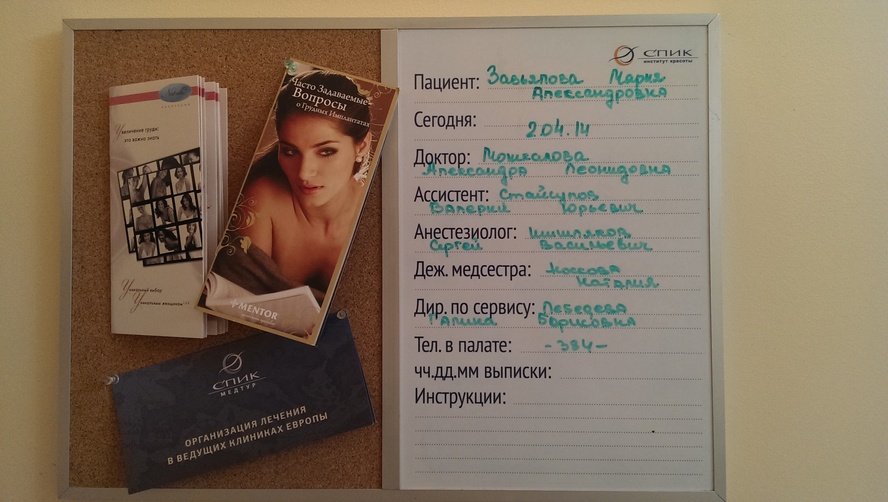 Natrelle
Увеличение груди:
это важно знать
Уникальный выбор
Уникальных женщин!!!
Часто Задаваемые
Вопросы
о Грудных Имплантатах
MENTOR
СПИК
МЕДТУР
ОРГАНИЗАЦИЯ ЛЕЧЕНИЯ
В ВЕДУЩИХ КЛИНИКАХ ЕВРОПЫ
СПИК
институт красоты
Пациент: Завьялова Мария
Александровна
Сегодня:
2.04.14
Доктор: Мошкалова
Александра Леонидовна
Ассистент: Стайсупов
Валерий Юрьевич
Анестезиолог: Шишляков
Сергей Васильевич
Деж. медсестра: Носкова
Наталия
Дир. по сервису: Лебедева
Галина Борисовна
Тел. в палате: -384-
чч.дд.мм выписки:
Инструкции: